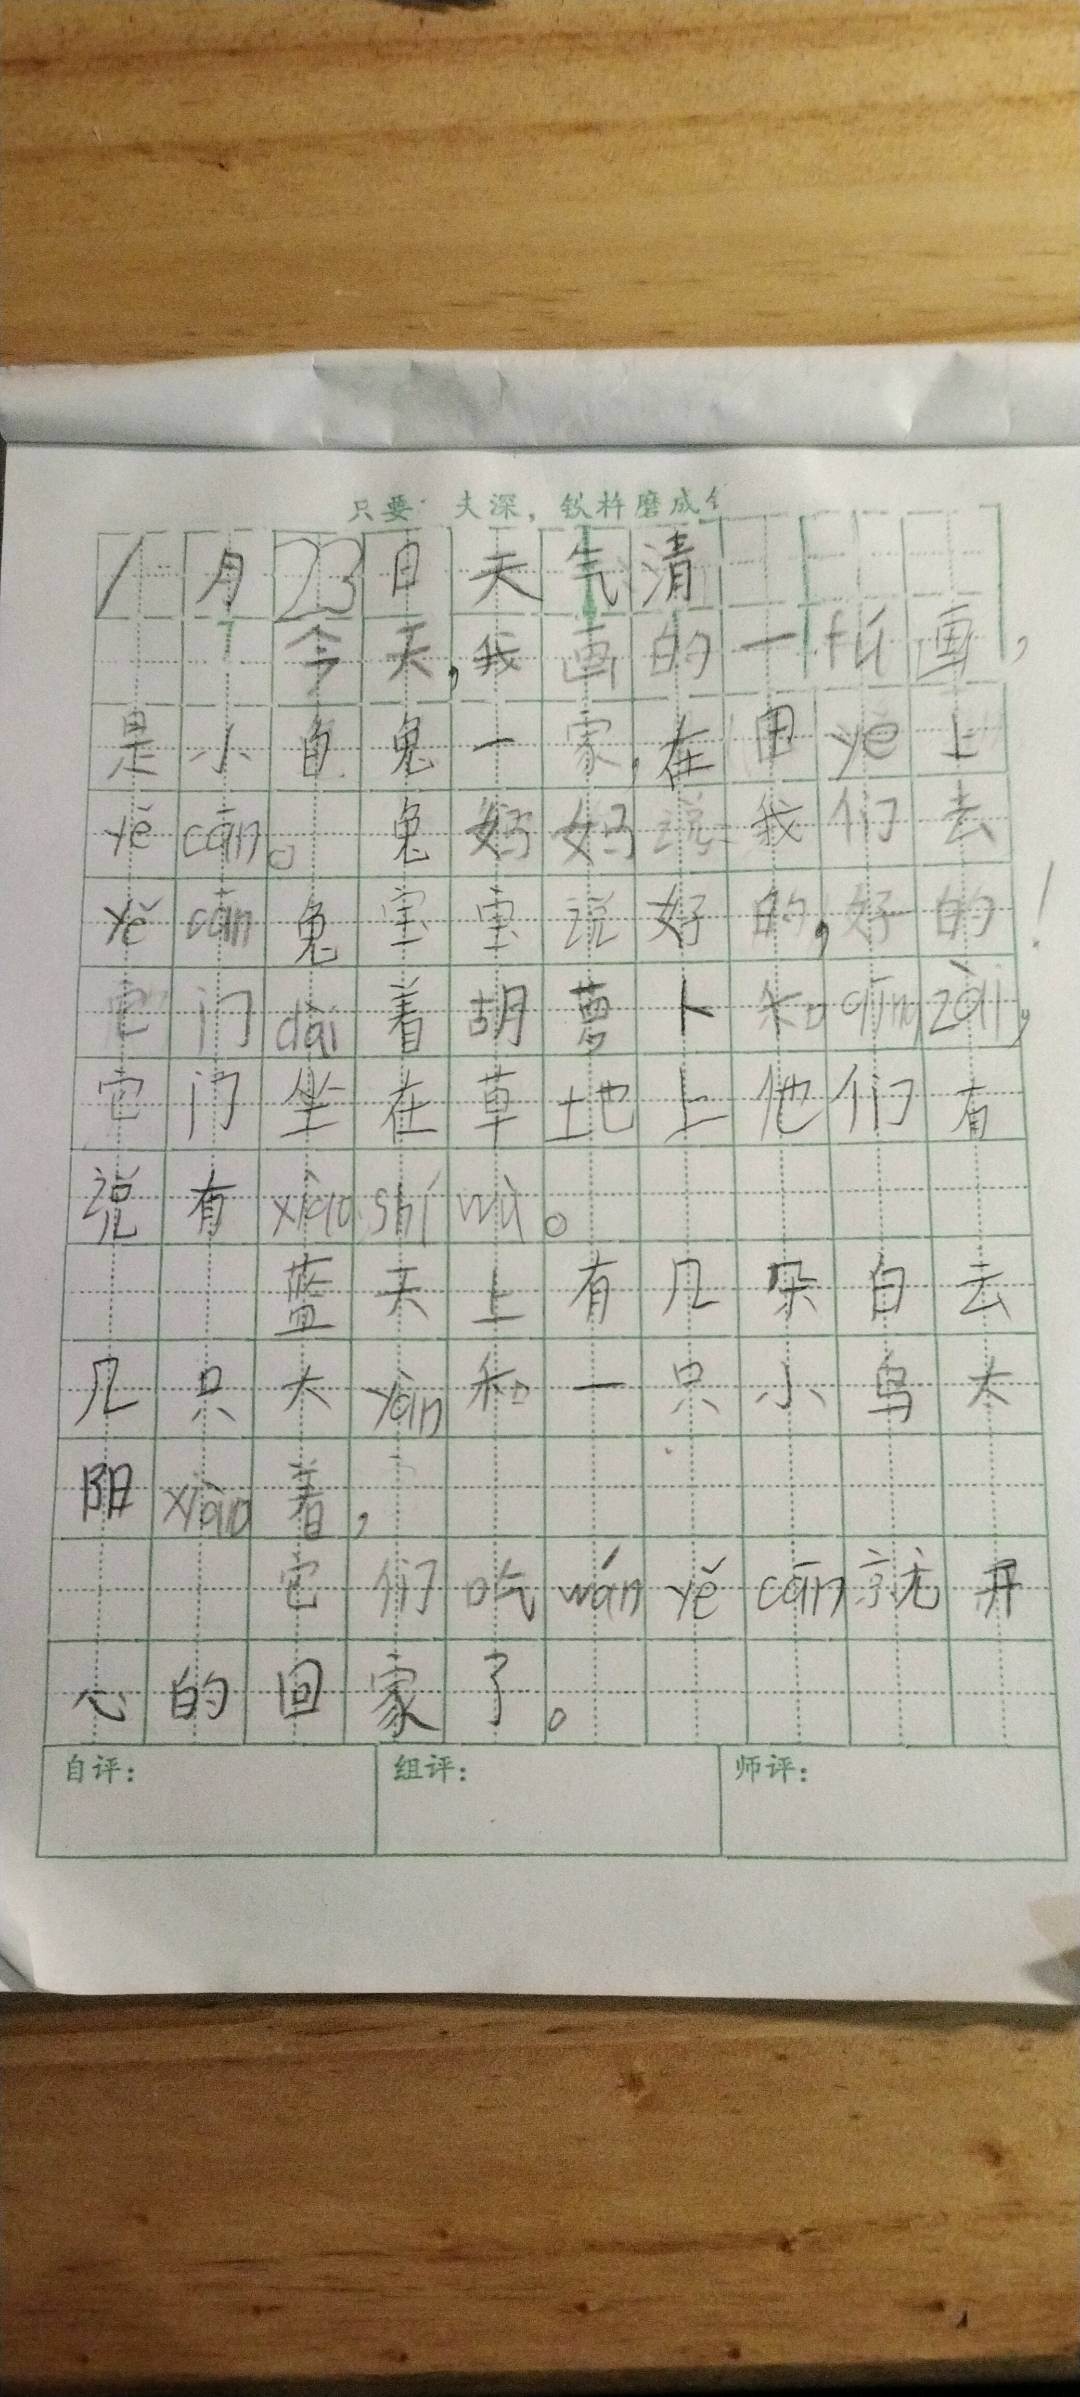 只要 夫深，铁杵磨成
1月23日天气清
今天，我画的一fú画，
是小白兔一家，在田yě上
yě cān。兔妈妈说我们去
yě cān兔宝宝说好的，好的！
它门dài着胡萝卜和qīng zài，
它门坐在草地上他们有
说有xiào shí wù。
蓝天上有几朵白去
几只大yàn和一只小鸟太
阳xiào着，
它们吃wán yě cān就开
心的回家了。
自评： 组评： 师评：